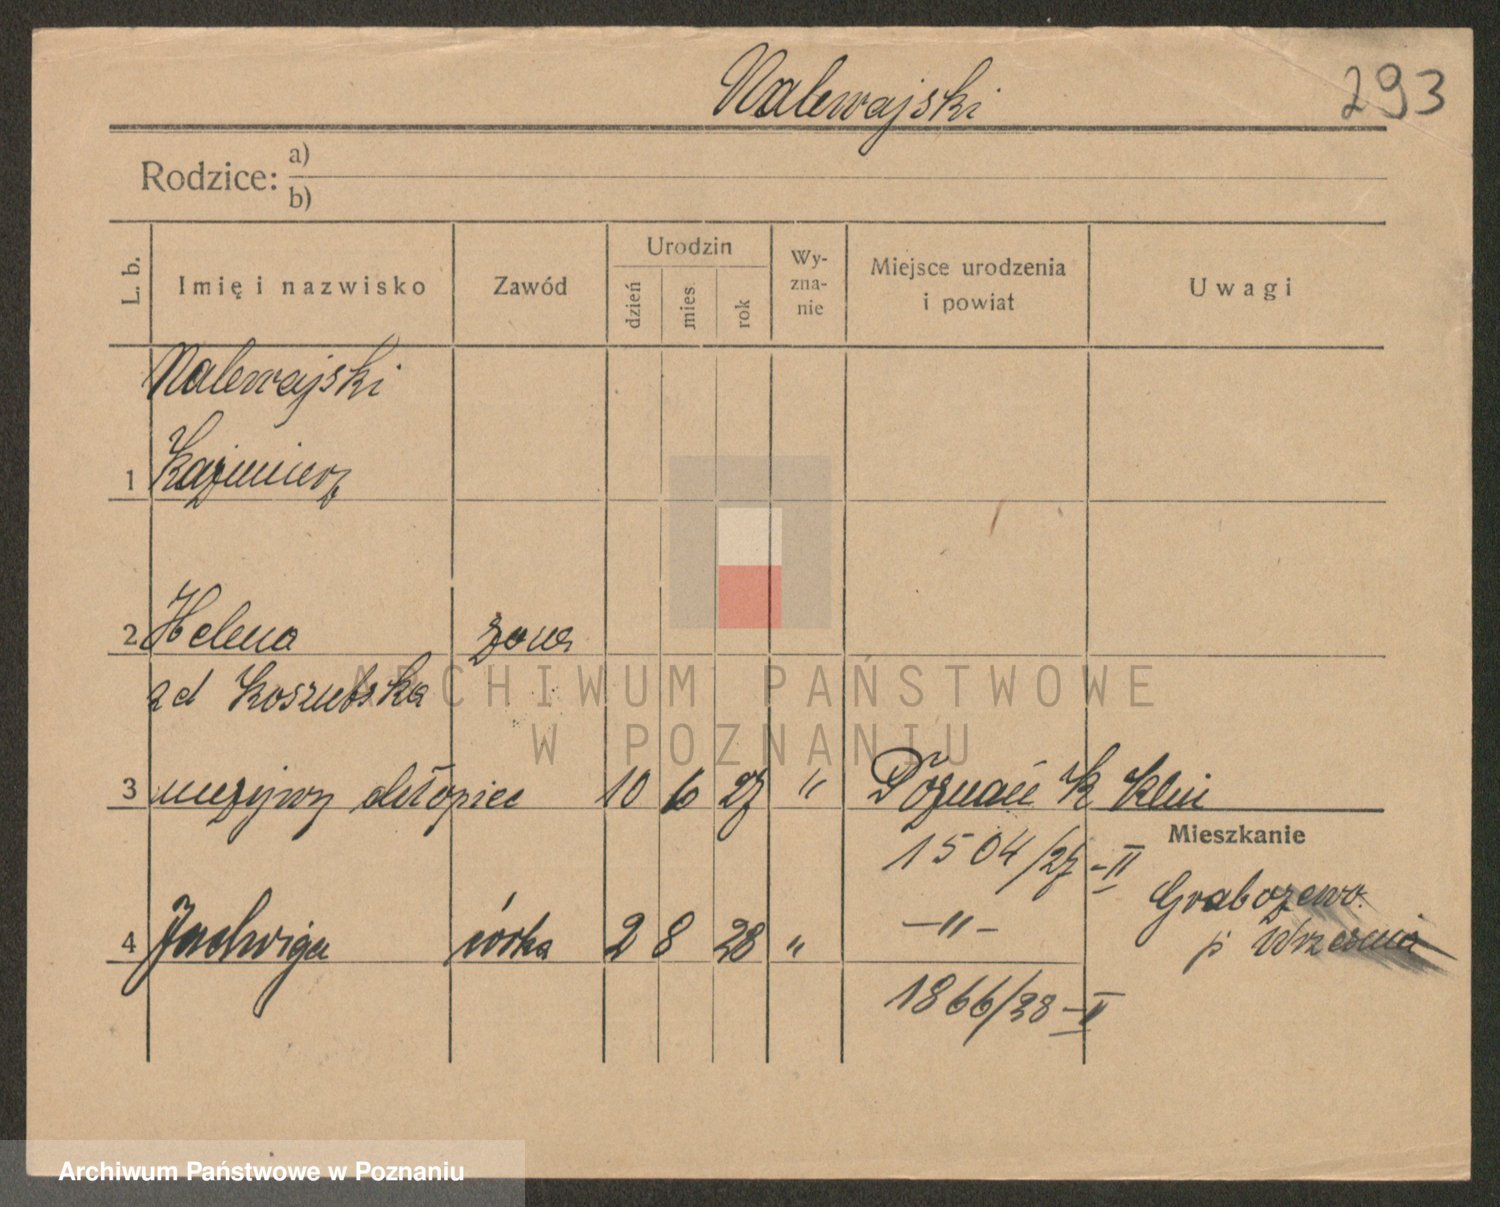 Nalewajski 293
Rodzice: a)
b)
L. b. Imię i nazwisko Zawód Urodzin dzień mies rok Wy-zna-nie Miejsce urodzenia i powiat Uwagi
Nalewajski
1 Kazimierz
2 Helena żona
zd Koszubska
3 nieżywy chłopiec 10 6 27 " Poznań K Klin
1504/27-II
Mieszkanie
Grabozewo
4 Jadwiga córka 2 8 28 " -"-
p Września
1866/28-II
ARCHIWUM PAŃSTWOWE
W POZNANIU
Archiwum Państwowe w Poznaniu